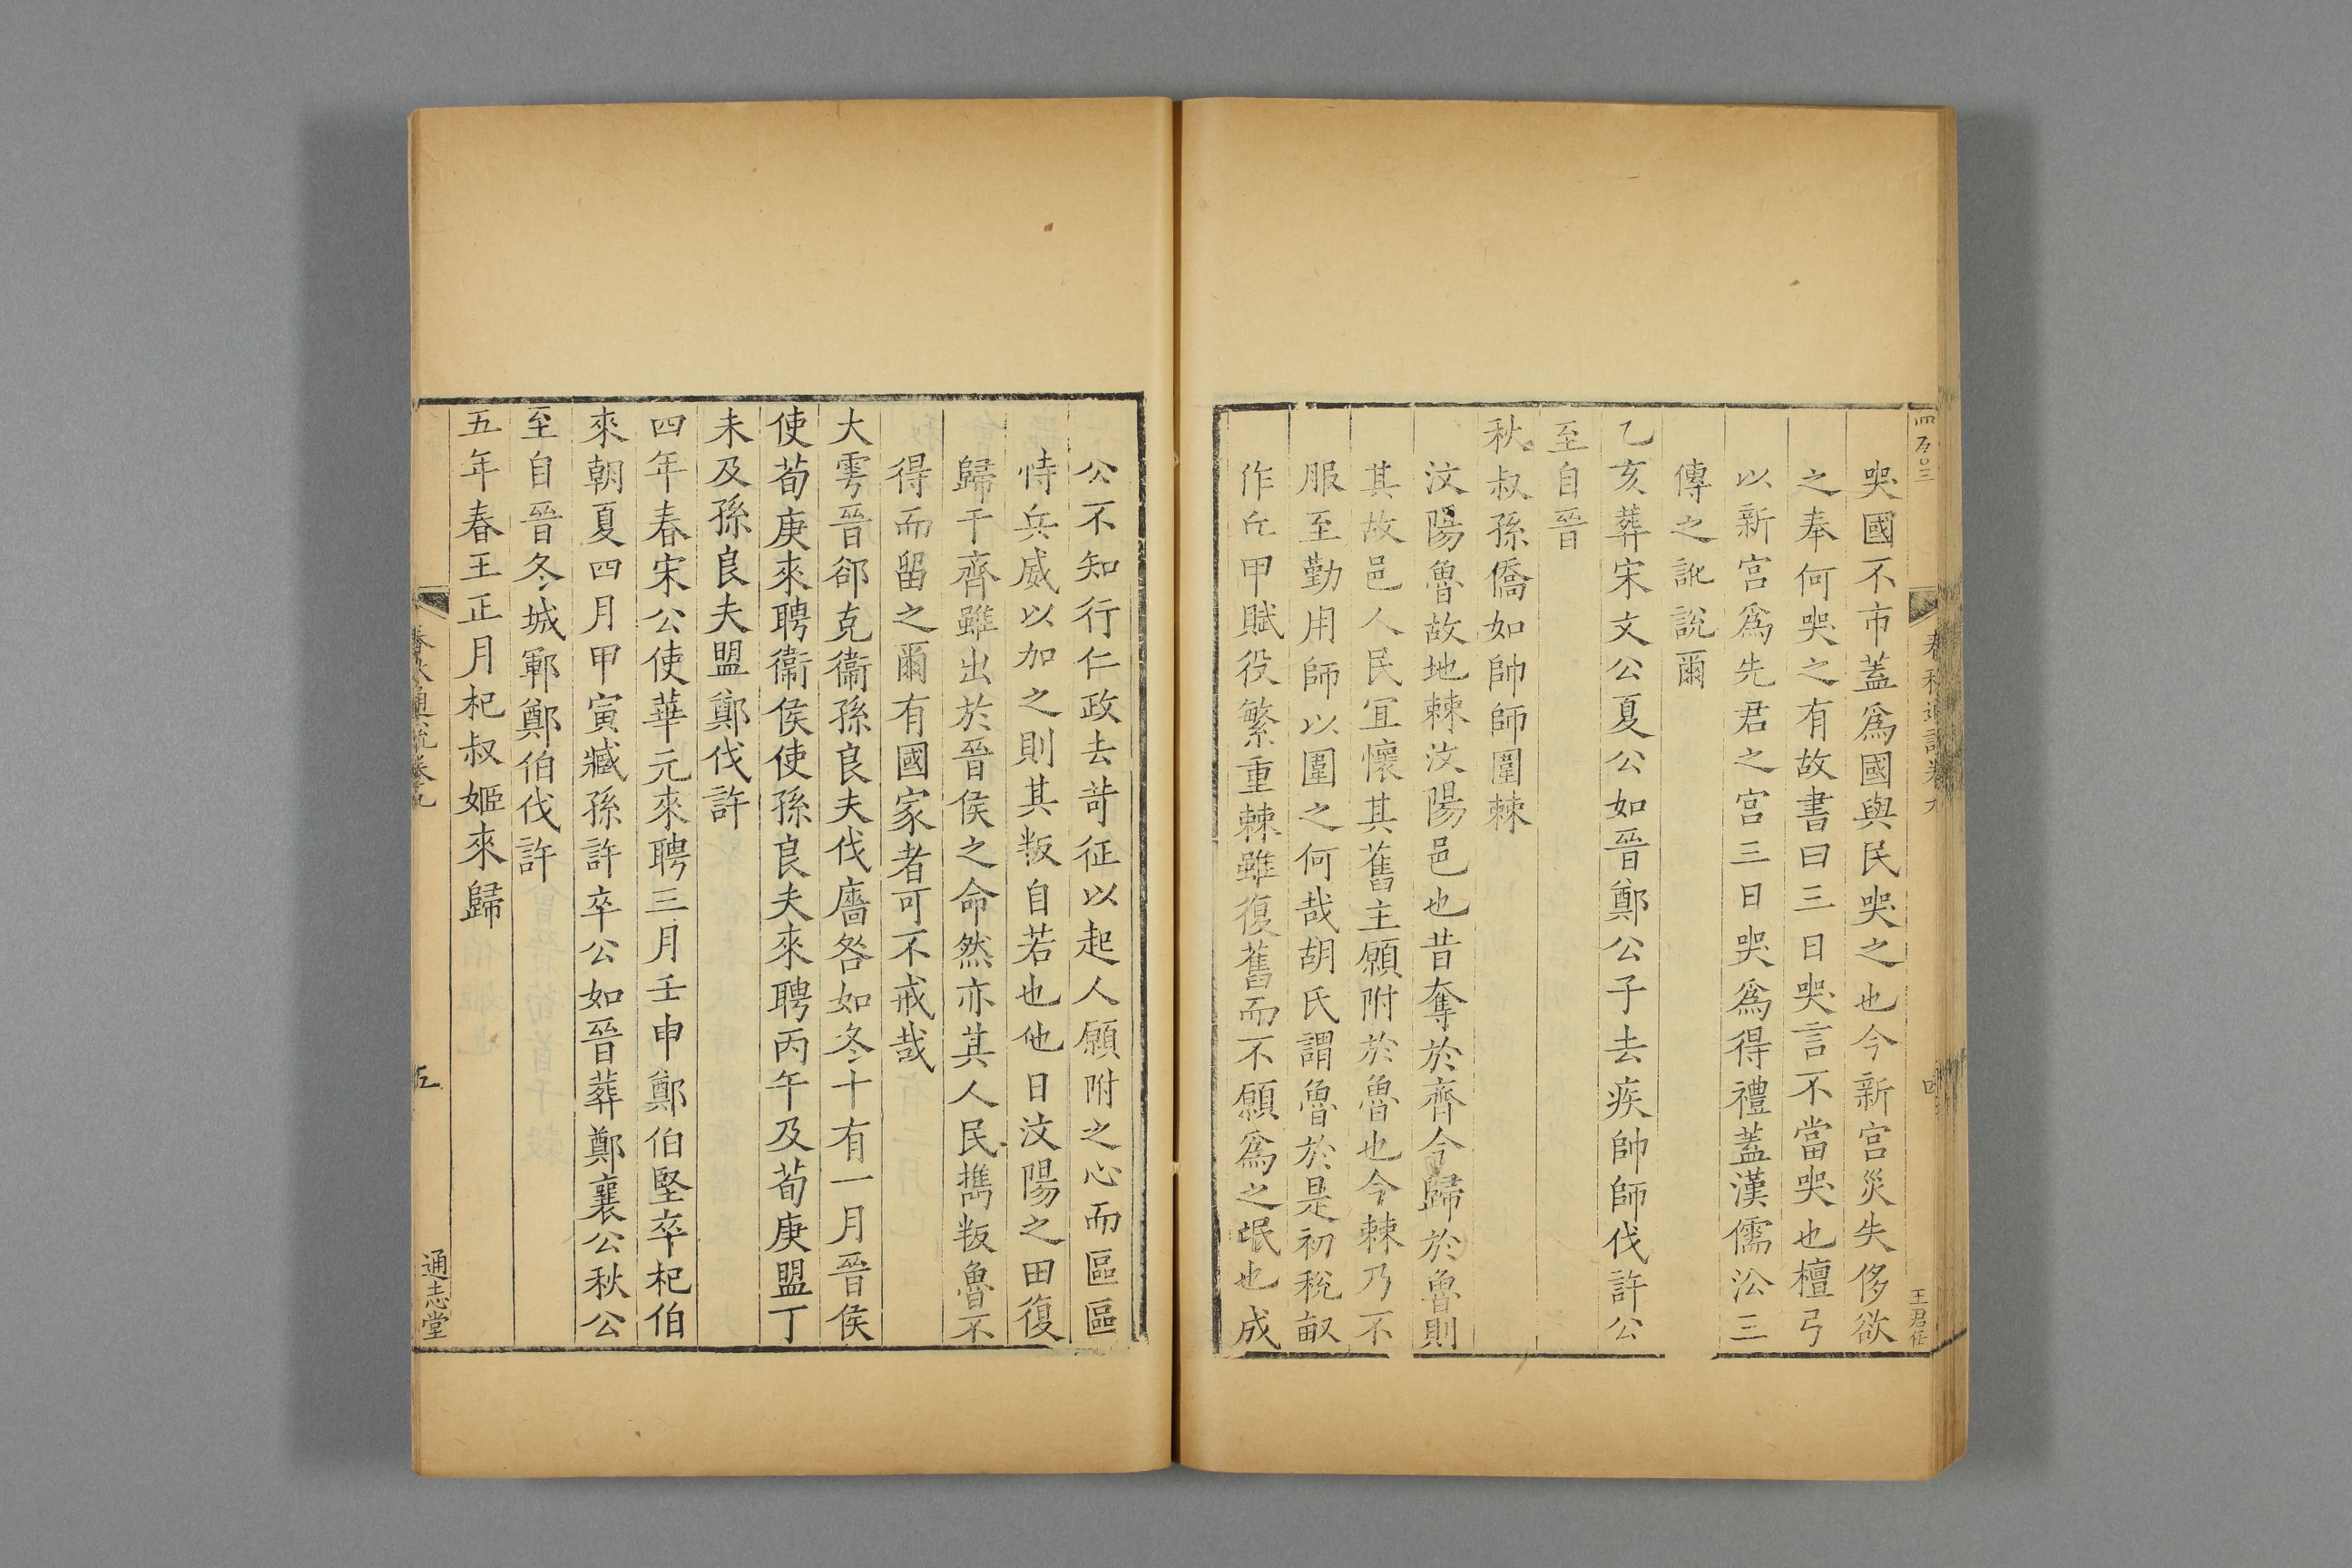 哭國不市蓋爲國與民哭之也今新宫災失侈欲
之奉何哭之有故書曰三日哭言不當哭也檀弓
以新宫爲先君之宫三日哭爲得禮蓋漢儒㳂三
傳之訛說爾
乙亥葬宋文公夏公如晉鄭公子去疾帥師伐許公
至自晉
秋叔孫僑如帥師圍棘
汶陽魯故地棘汶陽邑也昔奪於齊今歸於魯則
其故邑人民宜懷其舊主願附於魯也今棘乃不
服至勤用師以圍之何哉胡氏謂魯於是初稅畝
作丘甲賦役繁重棘雖復舊而不願爲之氓也成
公不知行仁政去苛征以起人願附之心而區區
恃兵威以加之則其叛自若也他日汶陽之田復
歸于齊雖出於晉侯之命然亦其人民攜叛魯不
得而留之爾有國家者可不戒哉
大雩晉郤克衞孫良夫伐廧咎如冬十有一月晉侯
使荀庚來聘衞侯使孫良夫來聘丙午及荀庚盟丁
未及孫良夫盟鄭伐許
四年春宋公使華元來聘三月壬申鄭伯堅卒杞伯
來朝夏四月甲寅臧孫許卒公如晉葬鄭襄公秋公
至自晉冬城鄆鄭伯伐許
五年春王正月杞叔姬來歸
春秋通說卷九
五
通志堂
王君任